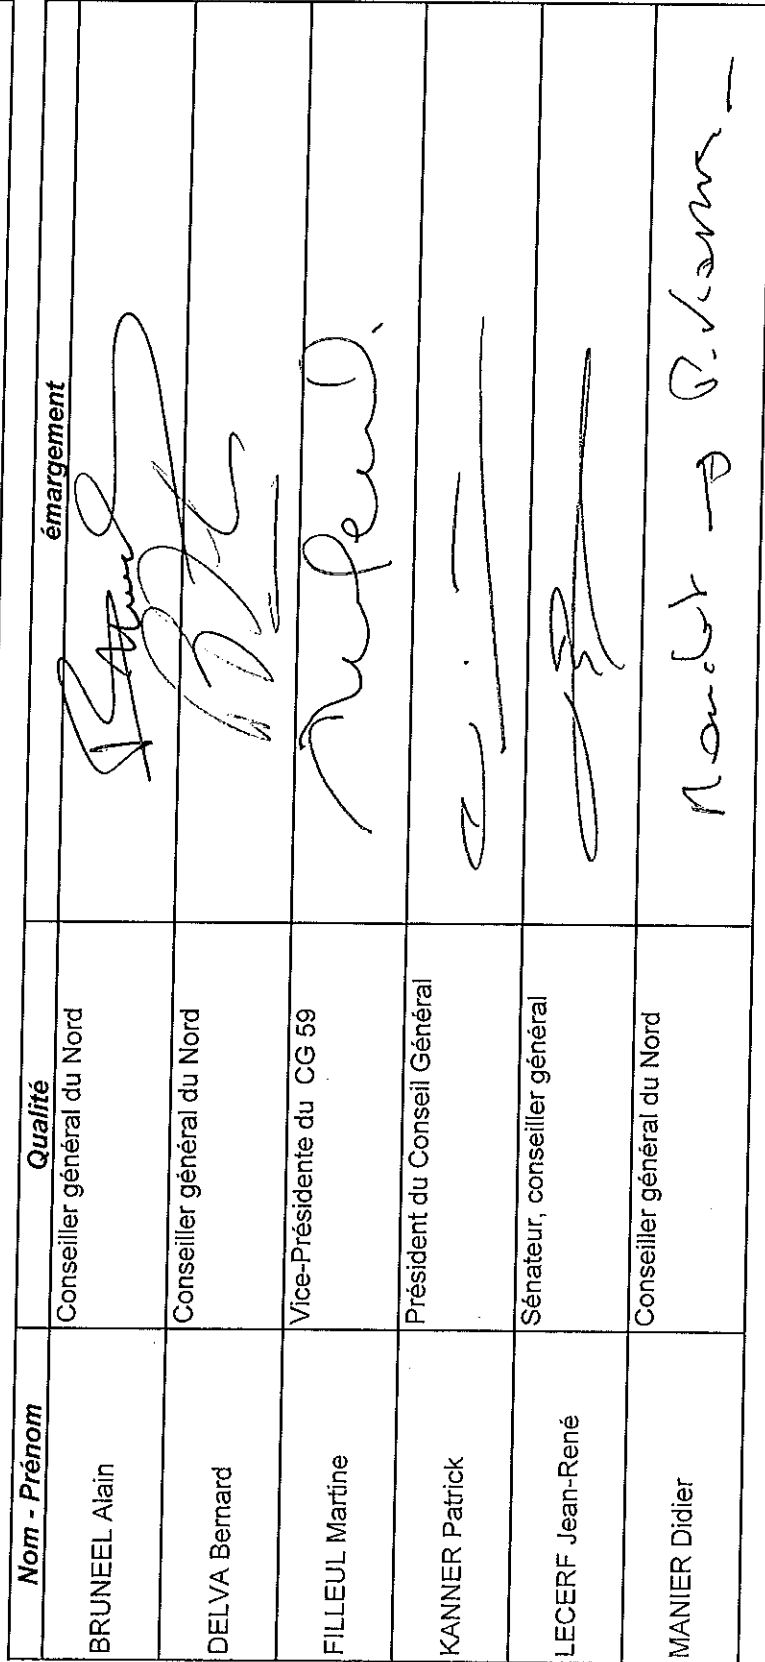 Nom - Prénom Qualité émargement
BRUNEEL Alain Conseiller général du Nord
DELVA Bernard Conseiller général du Nord
FILLEUL Martine Vice-Présidente du CG 59
KANNER Patrick Président du Conseil Général
LECERF Jean-René Sénateur, conseiller général
MANIER Didier Conseiller général du Nord Mandat → P. Kanner